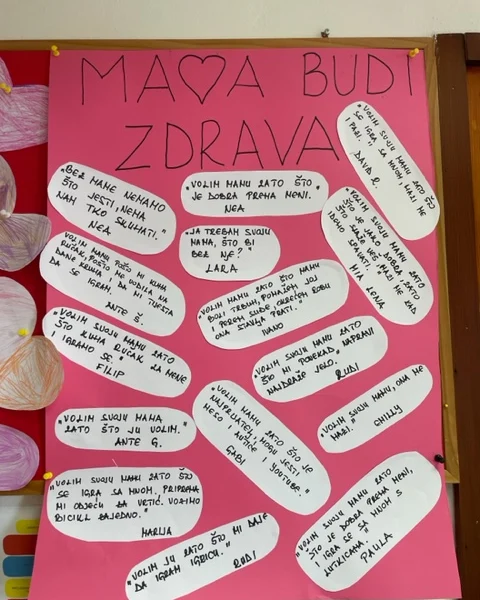 MA♡A BUDI
ZDRAVA
"VOLIM SVOJU MAMU ZATO ŠTO
SE IGRA SA MNOM, MAZI ME
I PAZI."
DAVID R.
"BEZ MAME NEMAMO
ŠTO JESTI, NEMA
NAM TKO SKUHATI."
NEA
"VOLIM MAMU ZATO ŠTO
JE DOBRA PREMA MENI.
NEA
"VOLIM SVOJU MAMU ZATO
ŠTO JE JAKO DOBRA ZATO
ŠTO MAZI ME KAD
IDEMO SPAVATI."
MIA LENA
"JA TREBAM SVOJU
MAMU, ŠTO BI
BEZ NJE?"
LARA
VOLIM MAMU POŠTO MI KUHA
RUČAK, POŠTO ME VODILA NA
DANE KRUHA, DA MI TIJESTA
DA SE IGRAM.
ANTE Š.
"VOLIM MAMU ZATO ŠTO MAMU
BOLI TRBUH, POMAŽEM JOJ
I PEREM SUĐE, OKREĆEM ROBU
ONA STAVLJA PRATI."
IVANO
"VOLIM SVOJU MAMU ZATO
ŠTO KUHA RUČAK ZA MENE
I IGRAMO SE."
FILIP
"VOLIM SVOJU MAMU ZATO
ŠTO MI PONEKAD NAPRAVI
NAJDRAŽE JELO.
RUDI
"VOLIM SVOJU MAMU, ONA ME
MAZI."
CHILLY
"VOLIM SVOJU MAMU,
ZATO ŠTO JU VOLIM."
ANTE G.
"VOLIM MAMU, ZATO ŠTO JE
NAJPRIJATELJ, MOGU JESTI
MESO I AUTIĆE I YOUTUBE."
GABI
"VOLIM SVOJU MAMU ZATO ŠTO
SE IGRA SA MNOM, PRIPREMA
MI ODJEĆU ZA VRTIĆ. VOZIMO
BICIKL ZAJEDNO."
MARIJA
"VOLIM JU ZATO ŠTO MI DAJE
DA IGRAM IGRICU."
RUDI
"VOLIM SVOJU MAMU ZATO
ŠTO JE DOBRA PREMA MENI,
I IGRA SE SA MNOM S
LUTKICAMA."
PAULA